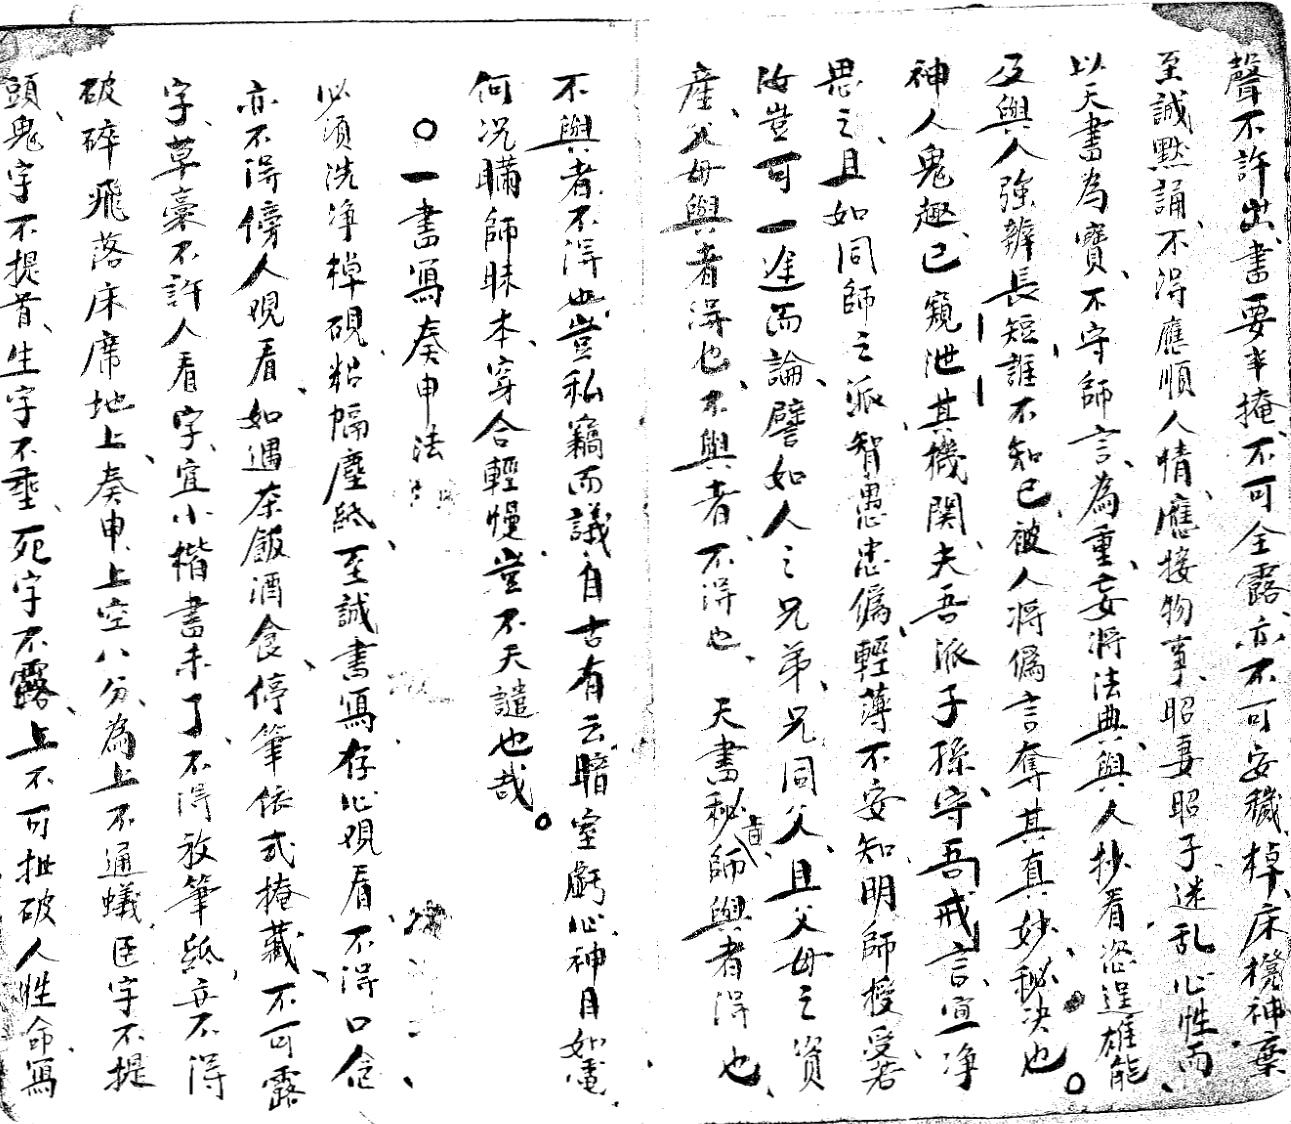 聲不許出、書要半掩、不可全露、亦不可安穢、棹、床櫈神棄
至誠默誦、不得應順人情、應接物事、昭妻昭子、迷乱心性、而
以天書為寶、不守師言、為重、妄將法典與人抄看、恣逞雄能、
及與人強辨長短、誰不知已、被人將偽言奪其真妙、秘决也○
神人鬼趣、已窺泄其機関、夫吾派子孫、守吾戒言、宜净
思之、且如同師之派、智愚忠偽、輕薄不安知明師授受、若
汝豈可一途而論、譬如人之兄弟、兄同父、且父母之資
產、父母與者得也、不與者、不得也、天書秘旨、師與者得也、
不與者、不得也、豈私竊而議、自古有云、暗室虧心、神目如電、
何况瞞師昧本、穿合輕慢、豈不天譴也哉○
○一書寫奏申法
必須洗净棹硯、粘幅塵紙、至誠書寫、存心覌看、不得口念、
亦不得傍人覌看、如遇茶飯酒食、停筆依式掩藏、不可露
字、草稾不許人看、字宜小楷書、未了不得放筆、紙亦不得
破碎飛落床席地上、奏申、上空八分、為上不通蟻、臣字不提
頭、鬼字不提首、生字不垂、死字不露、上不可扯破人性命、寫